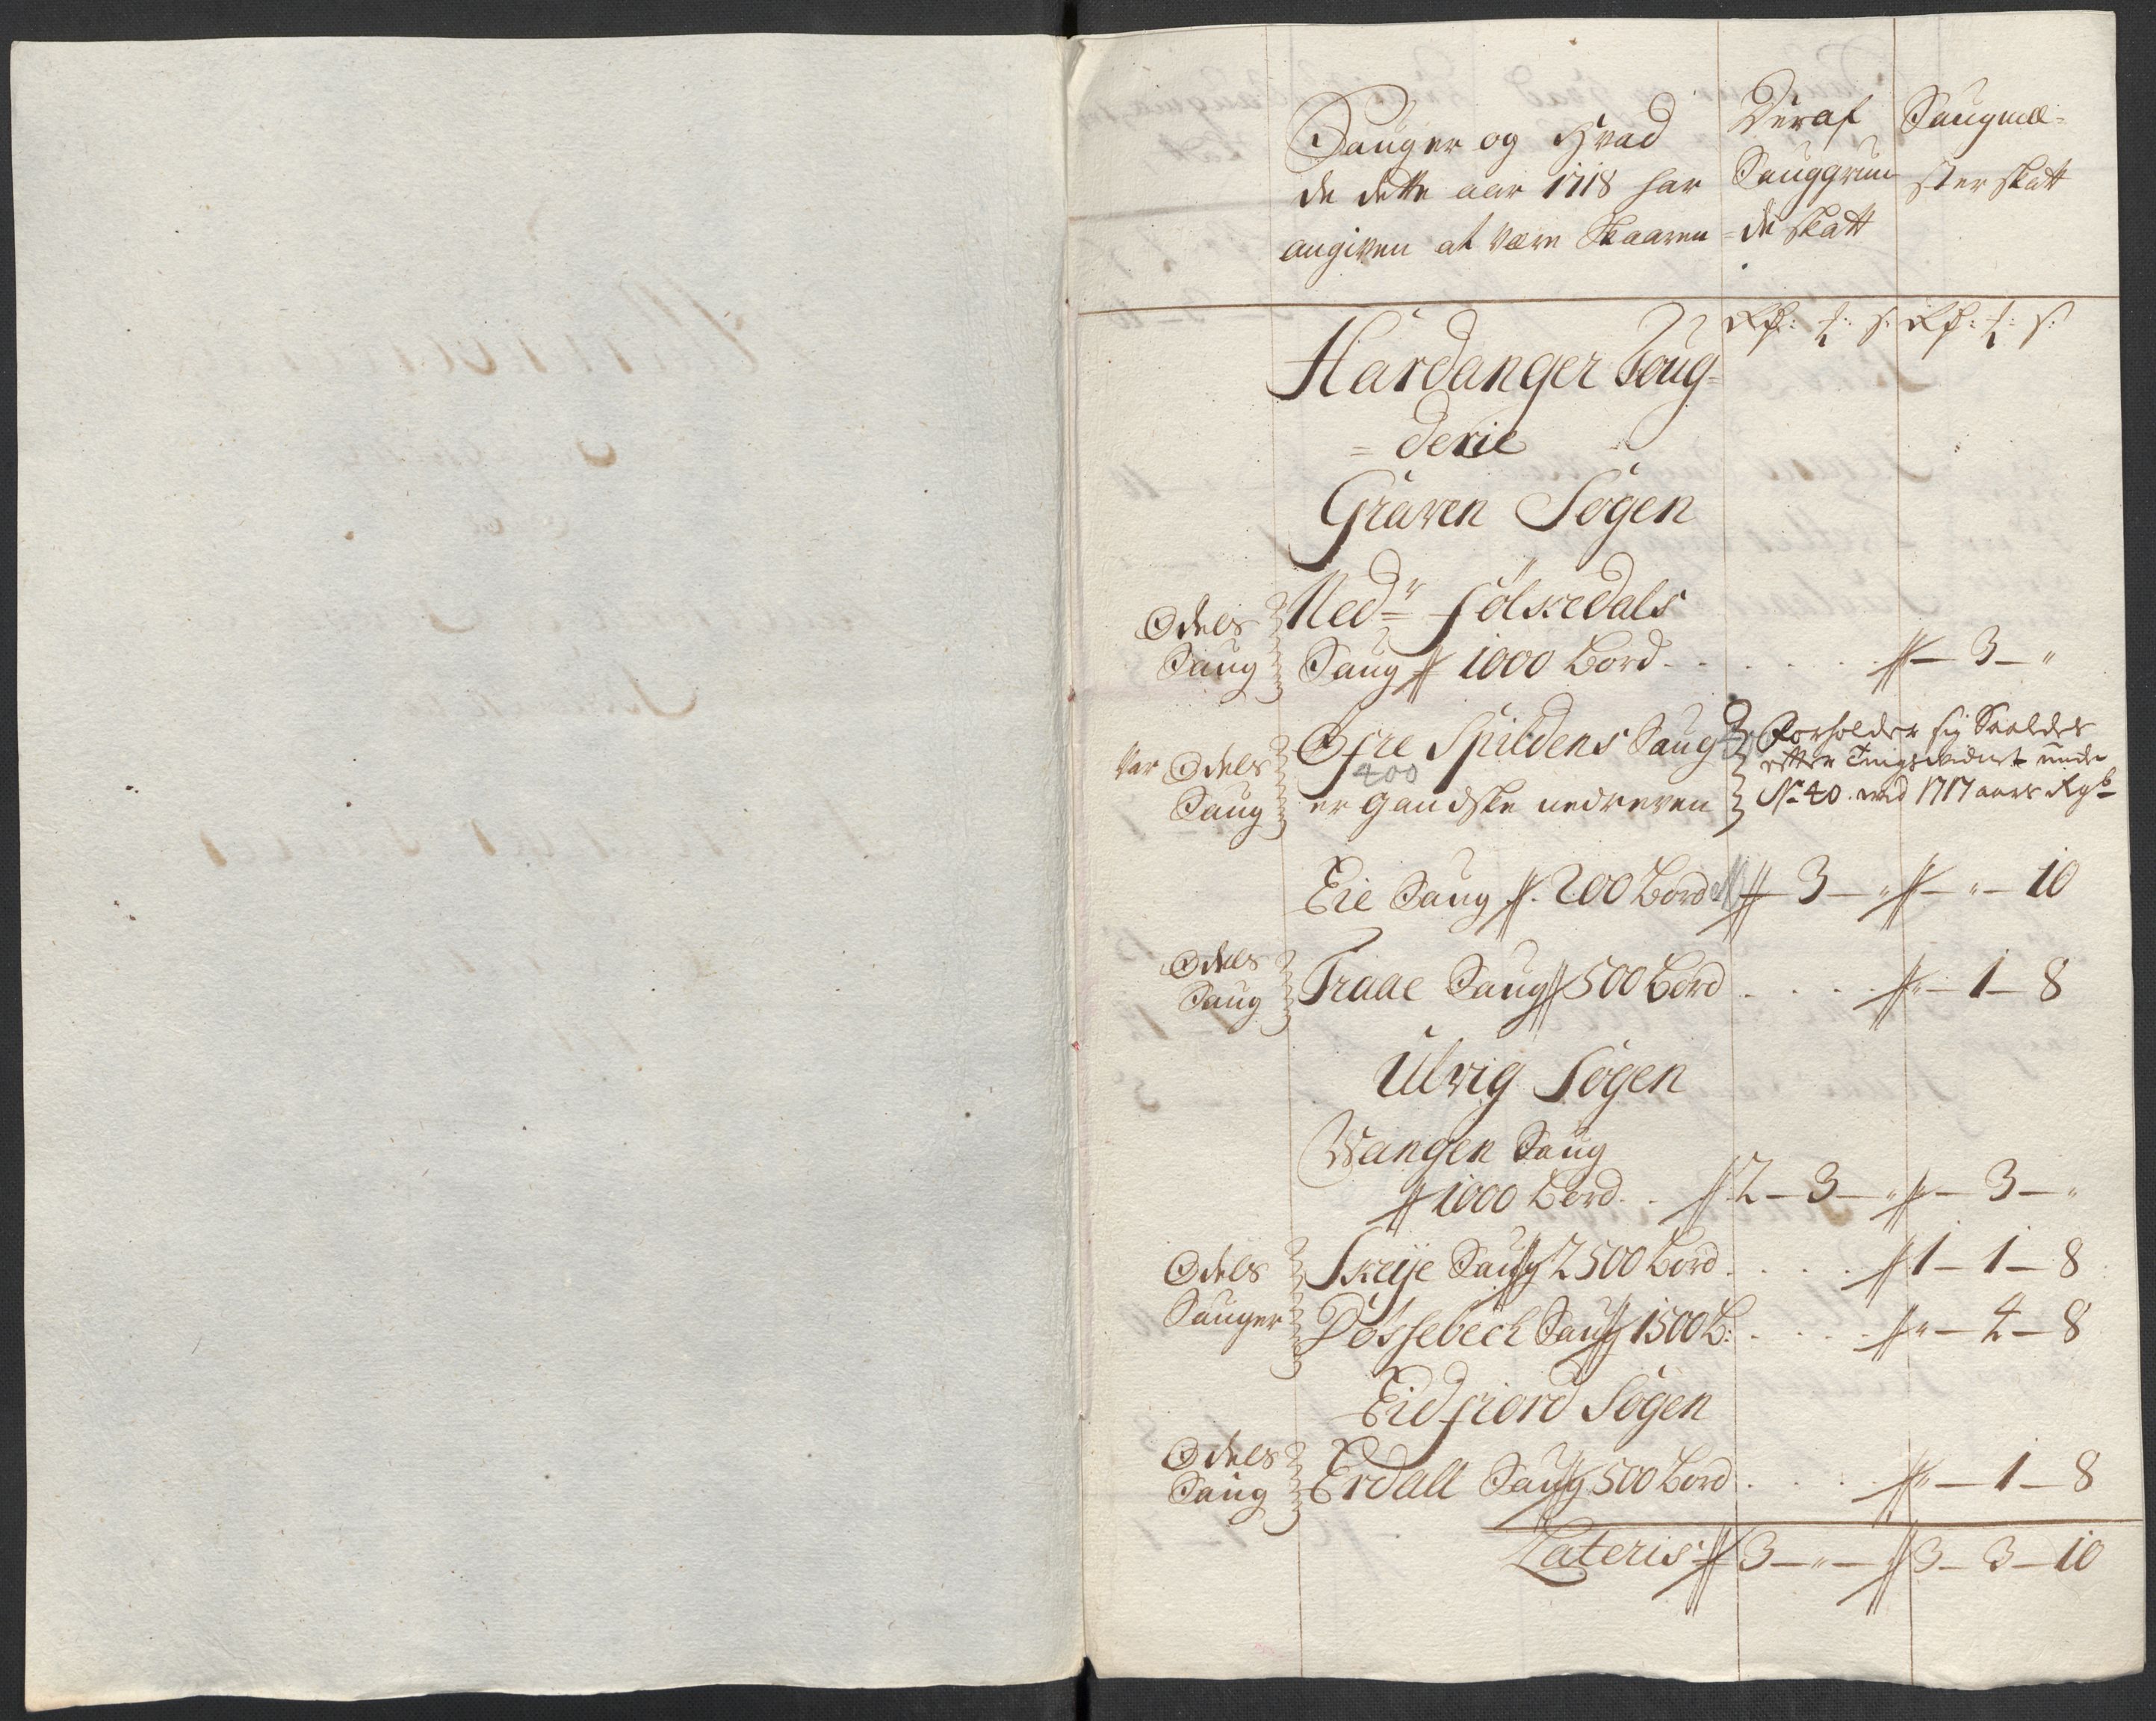 Sauger og Hvad
de dette aar 1718 har
angiven at være Skaaren
Deraf
Sauggrun
=de skatt
Saugmæ=
ster skatt
Rd: t: s: Rd: t: s:
Hardanger Foug=
=derie
Graven Sogen
Odels
Saug
Nedr Følkedals
Saug # 1000 bord - - - - - - # - 3 - "
Var Odels
Saug
Øfre Spildens Saug
400
er Gandske nedreven
Forholder sig Saaledes
efter Tingsvidnet under
No 40. ved 1717 aars Regsk
Eie Saug #. 200 bord # 3 - " # - " - 10
Odels
Saug
Traae Saug # 500 bord - - - - # " - 1 - 8
Ulvig Sogen
Wangen Saug
# 1000 bord - - # 2 - 3 - " # - 3 - "
Odels
Sauger
Skeije Saug # 2500 bord - - - - # 1 - 1 - 8
Døssebech Saug # 1500 b: - - - - # " - 4 - 8
Eidfiord Sogen
Odels
Saug
Erdall Saug # 500 bord - - - # " - 1 - 8
Lateris # 3 - " - # 3 - 3 - 10